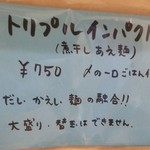 トリプルインパクト
(煮干しあえ麺)
¥750 〆の一口ごはん付
だし・かえし・麺の融合!!
大盛り・替玉はできません。